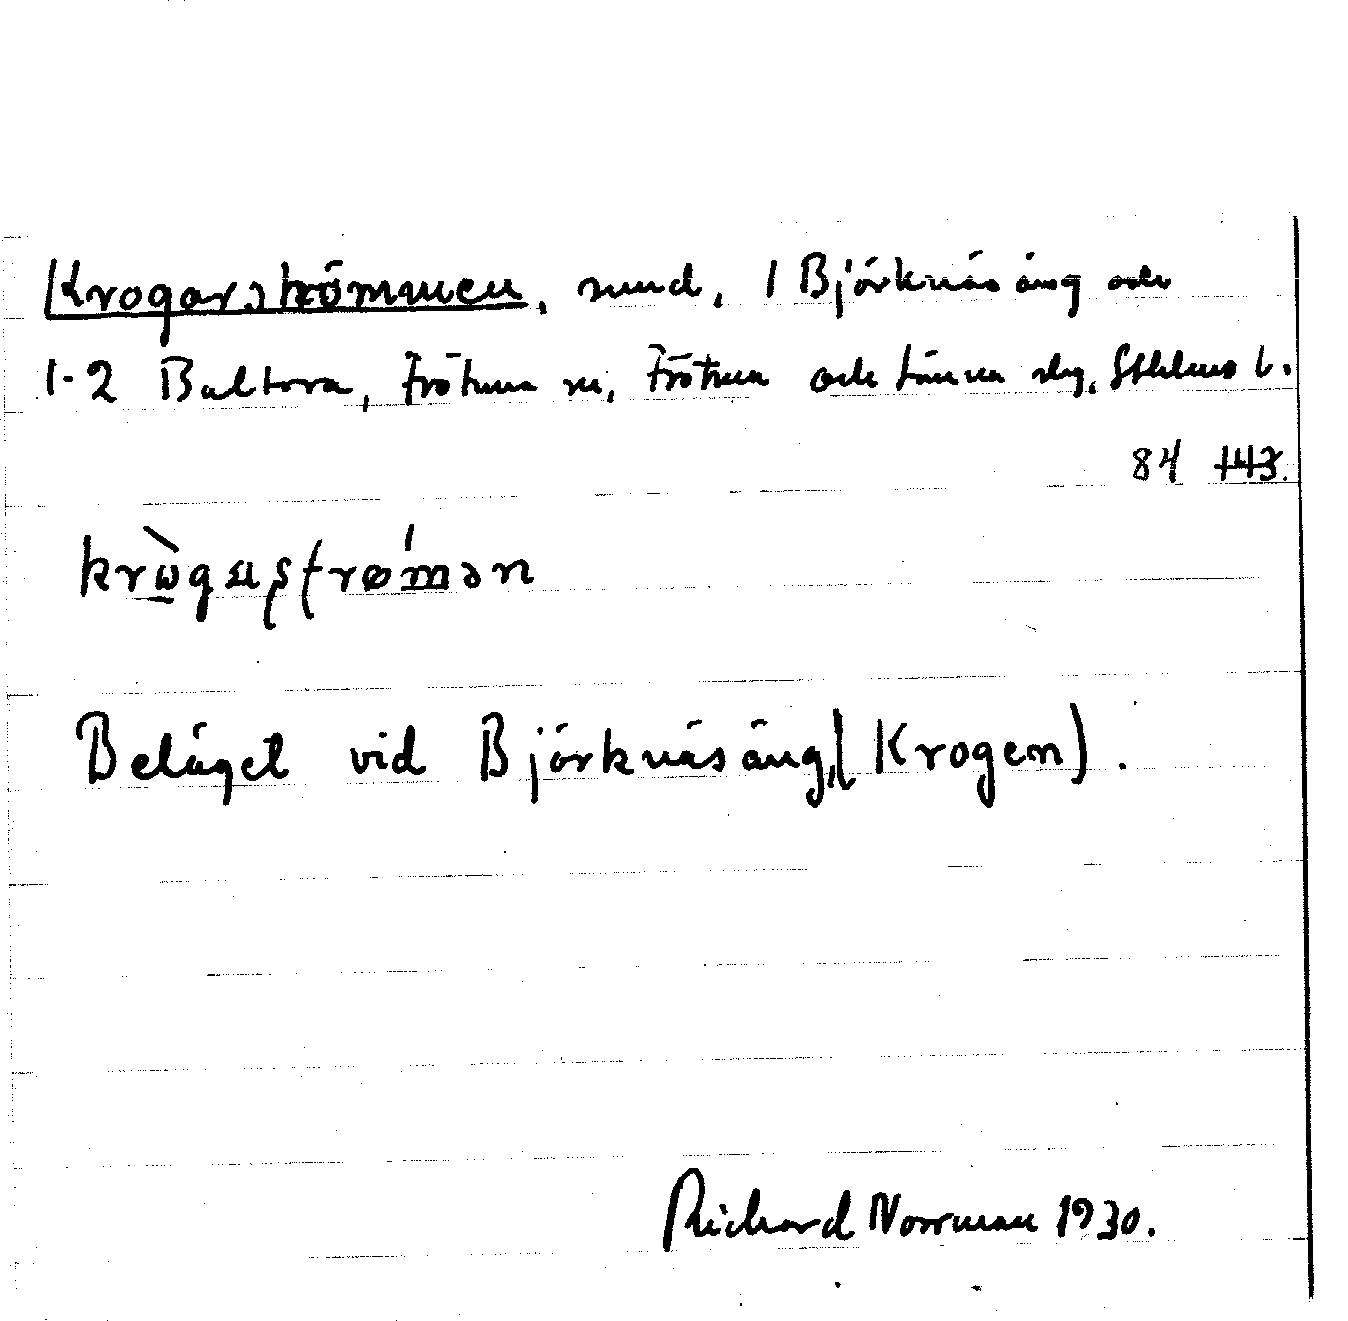 Krogarströmmen, sund, 1 Björknäsäng och
1-2 Baltora, Frötuna sn, Frötuna och Länna slg, Sthlms l.
84 143.
krògaʂtrǿmən
Beläget vid Björknäsäng, (Krogen).
Richard Norrman 1930.